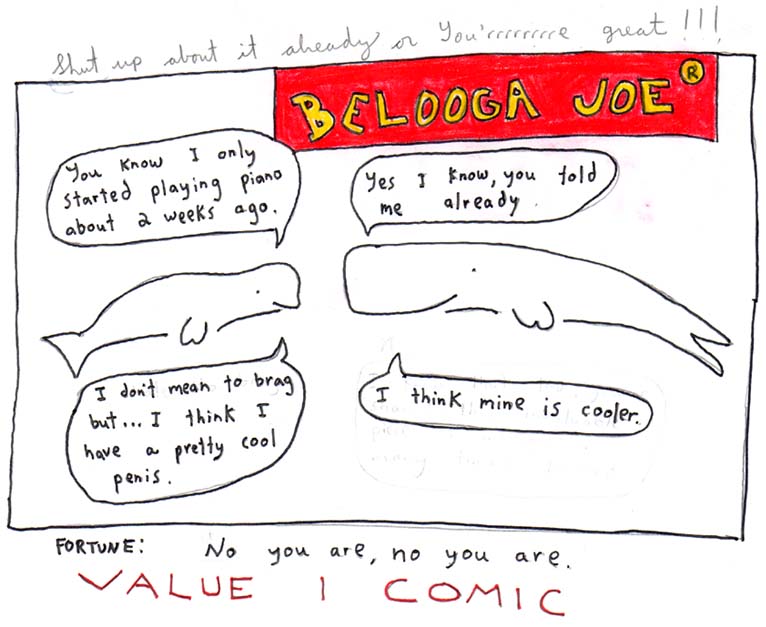 Shut up about it already or You'rrrrrrrre great !!!
BELOOGA JOE®
You know I only
started playing piano
about 2 weeks ago.
Yes I know, you told
me already.
I don't mean to brag
but... I think I
have a pretty cool
penis.
I think mine is cooler.
FORTUNE: No you are, no you are.
VALUE 1 COMIC